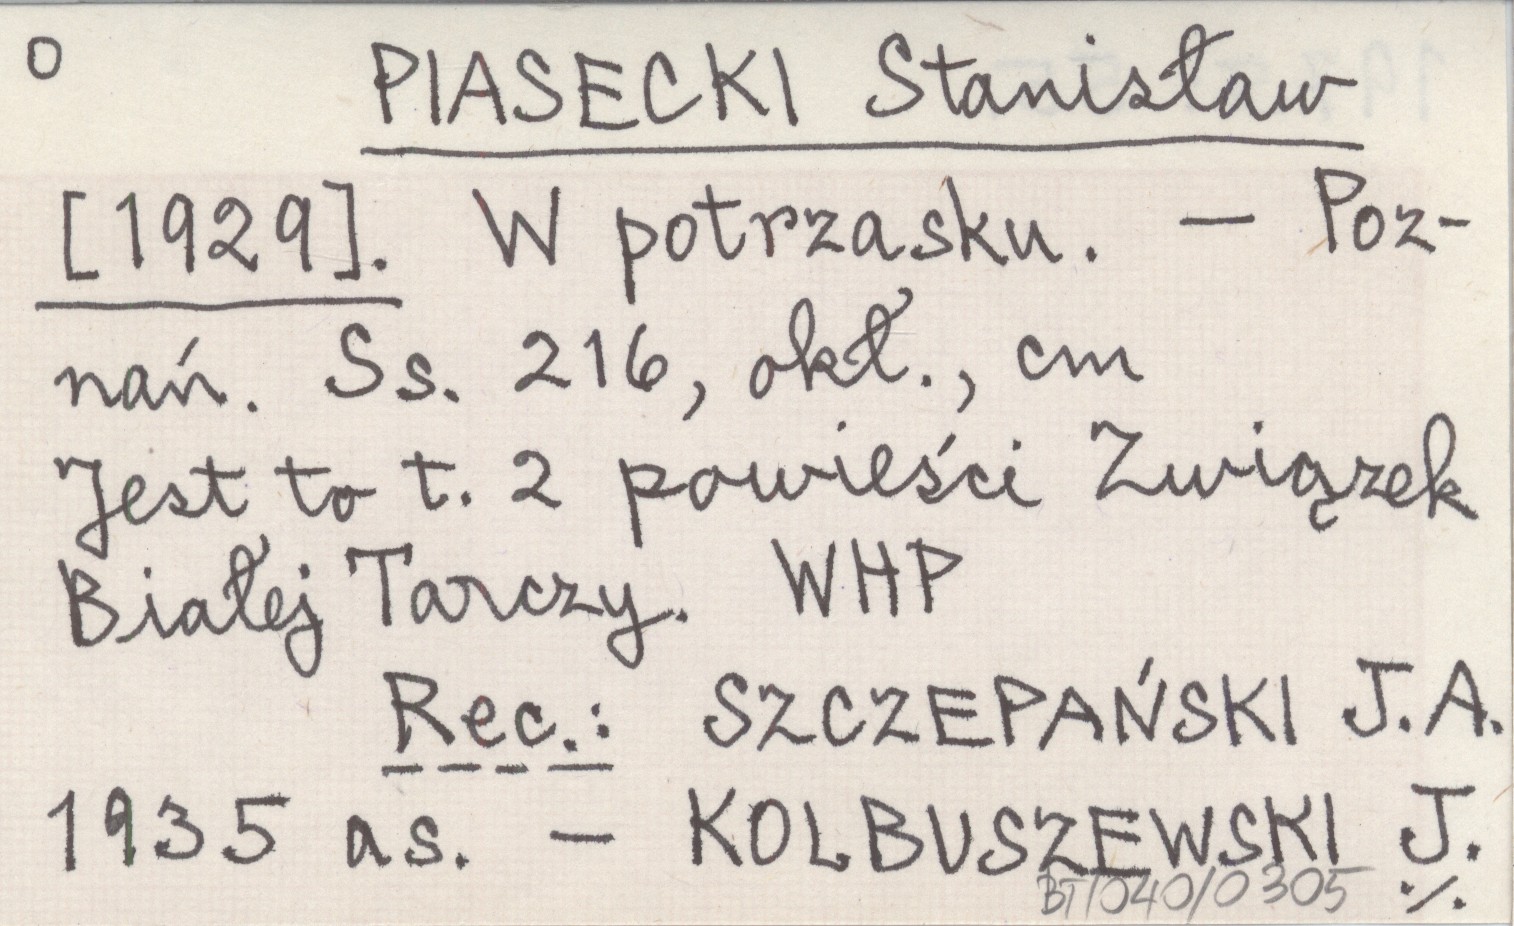 O PIASECKI Stanisław
[1929]. W potrzasku. — Poz-
nań. Ss. 216, okł., cm
Jest to t. 2 powieści Związek
Białej Tarczy. WHP
Rec.: SZCZEPAŃSKI J.A.
1935 as. — KOLBUSZEWSKI J.
BT/040/0305 ./.